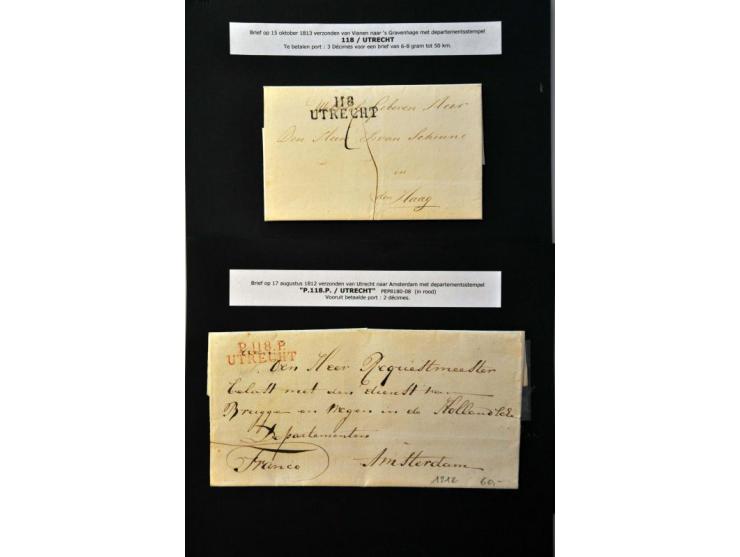 Brief op 15 oktober 1813 verzonden van Vianen naar 's Gravenhage met departementsstempel
118 / UTRECHT
Te betalen port : 3 Décimes voor een brief van 6-8 gram tot 50 km.
118
UTRECHT
Geboren Heer
Den Heer van Schinne
in
den Haag
Brief op 17 augustus 1812 verzonden van Utrecht naar Amsterdam met departementsstempel
"P.118.P. / UTRECHT" PEP8180-08 (in rood)
Vooruit betaalde port : 2 décimes.
P.118.P.
UTRECHT
den Heer Requestmeester
belast met den dienst van
Bruggen en Wegen in de Hollandsche
Departementen
Franco Amsterdam
1812 60,-